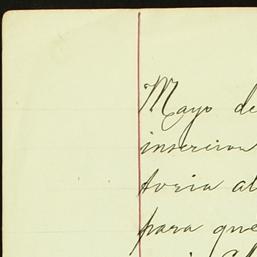 Mayo de
inscricion
toria al
para que